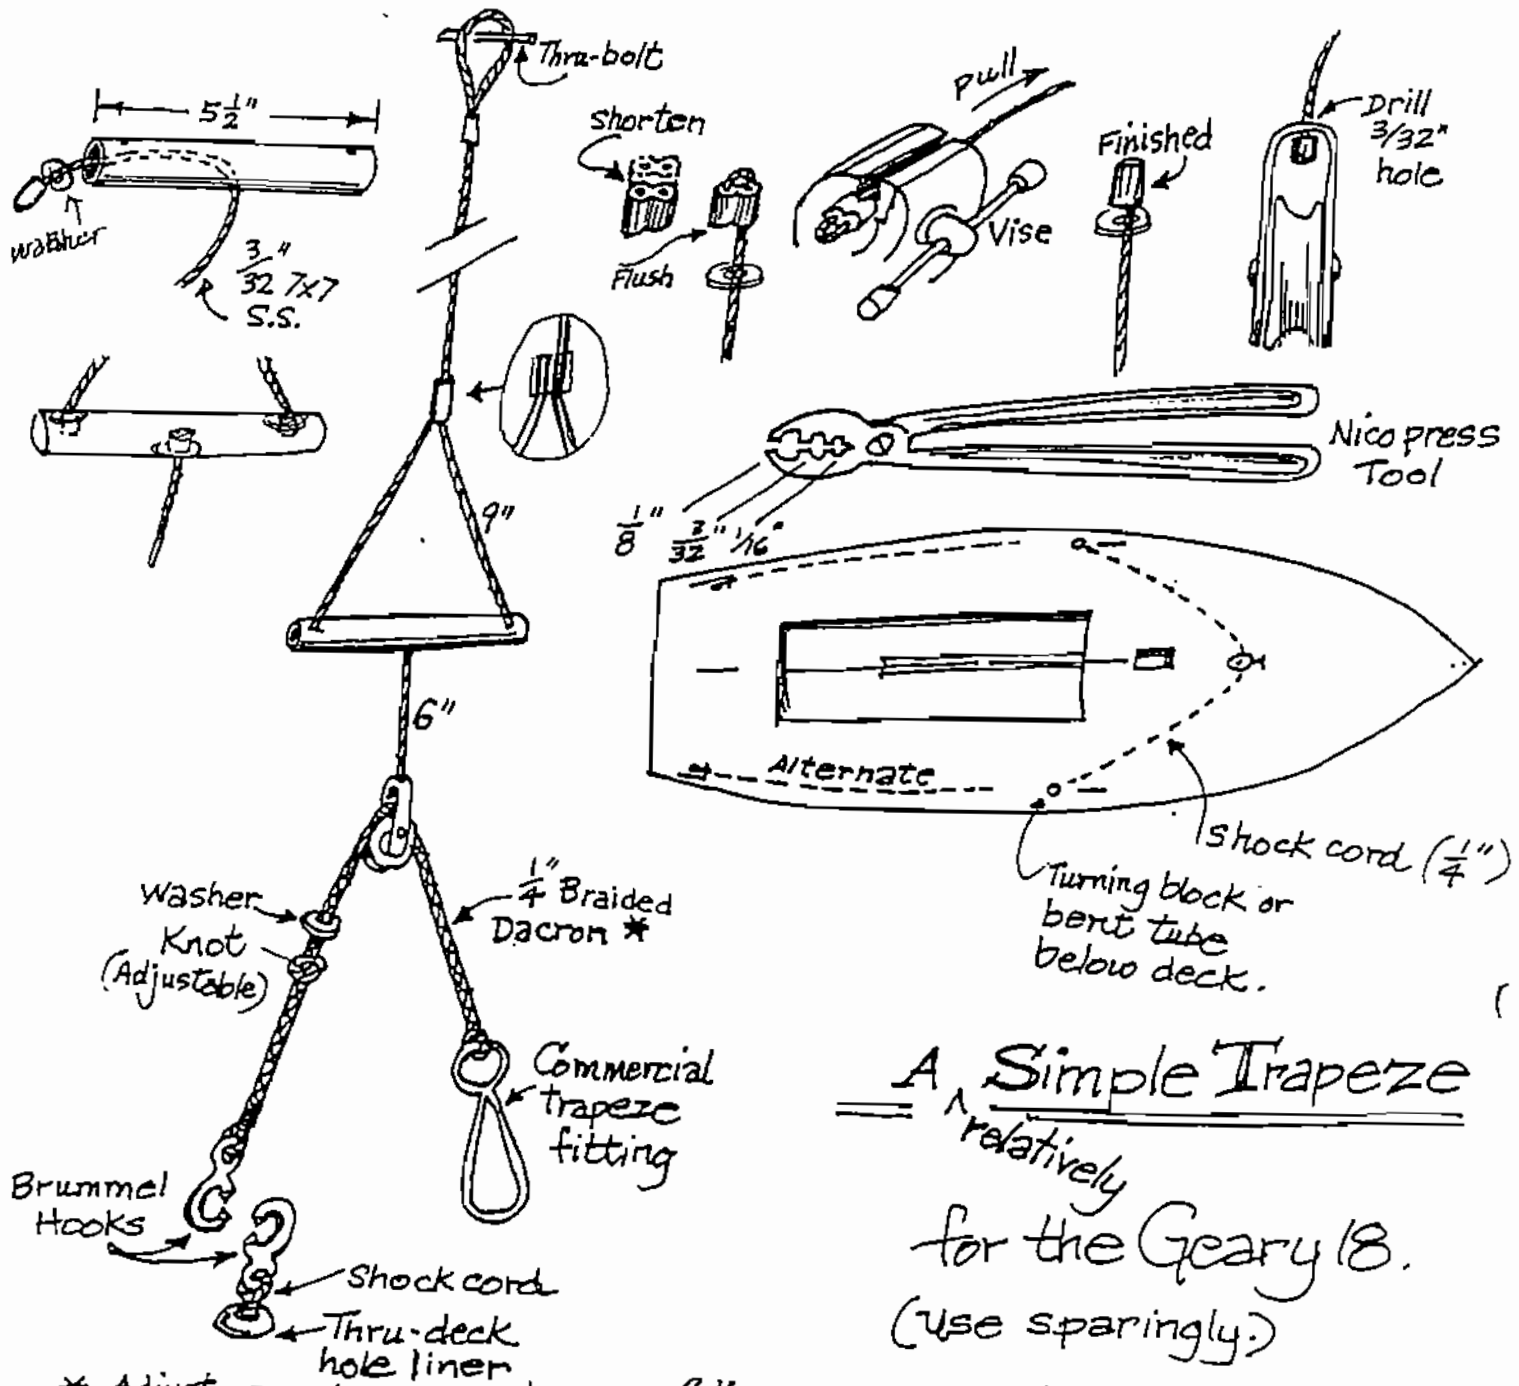 Thru-bolt
5 1/2"
washer
3/32" 7x7
S.S.
shorten
Flush
pull
Vise
Finished
Drill
3/32"
hole
Nicopress
Tool
1/8" 3/32" 1/16"
9"
6"
Alternate
Shock cord (1/4")
Turning block or
bent tube
below deck.
1/4" Braided
Dacron *
Washer
Knot
(Adjustable)
Commercial
trapeze
fitting
Brummel
Hooks
Shock cord
Thru-deck
hole liner
A ^ Simple Trapeze
relatively
for the Geary 18.
(use sparingly.)
* Adjust